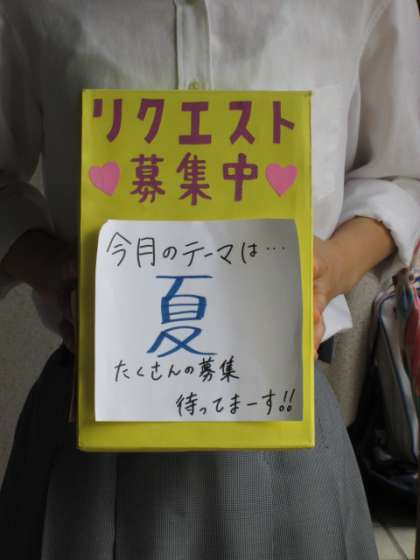 リクエスト
♥募集中♥
今月のテーマは…
夏
たくさんの募集
待ってまーす!!